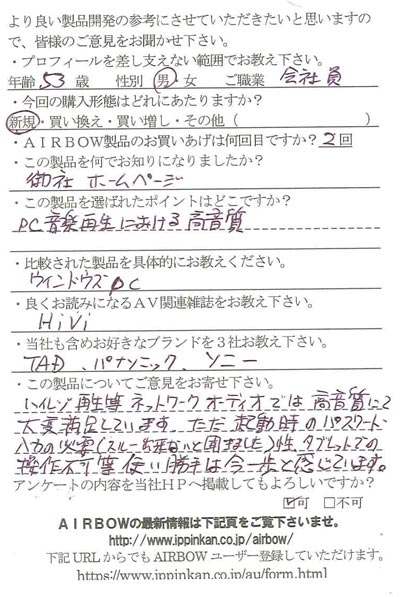 より良い製品開発の参考にさせていただきたいと思いますの
で、皆様のご意見をお聞かせ下さい。
・プロフィールを差し支えない範囲でお教え下さい。
年齢 53 歳 性別 男 女 ご職業 会社員
・今回の購入形態はどれにあたりますか？
新規・買い換え・買い増し・その他（ ）
・ＡＩＲＢＯＷ製品のお買いあげは何回目ですか？ 2 回
・この製品を何でお知りになりましたか？
御社 ホームページ
・この製品を選ばれたポイントはどこですか？
PC音楽再生における高音質
・比較された製品を具体的にお教えください。
ウインドウズPC
・良くお読みになるＡＶ関連雑誌をお教え下さい。
HiVi
・当社も含めお好きなブランドを３社お教え下さい。
TAD、パナソニック、ソニー
・この製品についてご意見をお寄せ下さい。
ハイレゾ再生等ネットワークオーディオでは高音質にて
大変満足しています。ただ起動時のパスワード
入力の必要(スルー出来ないと困りました)性、タブレットでの
操作不可等使い勝手は今一歩と感じています。
アンケートの内容を当社ＨＰへ掲載してもよろしいですか？
☑可 □不可
ＡＩＲＢＯＷの最新情報は下記頁をご覧下さいませ。
http://www.ippinkan.co.jp/airbow/
下記 URL からでも AIRBOW ユーザー登録していただけます。
https://www.ippinkan.co.jp/au/form.html